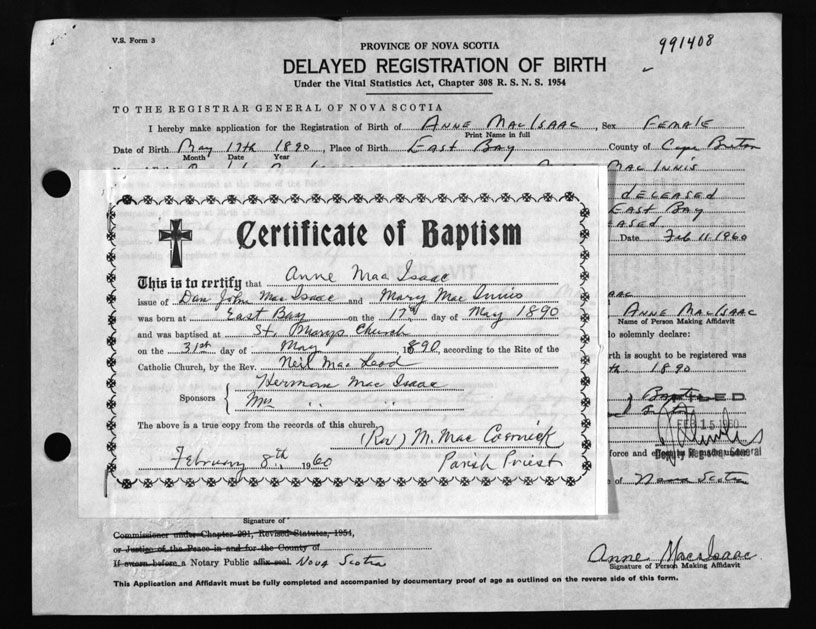 V.S. Form 3
991408
PROVINCE OF NOVA SCOTIA
DELAYED REGISTRATION OF BIRTH
Under the Vital Statistics Act, Chapter 308 R. S. N. S. 1954
TO THE REGISTRAR GENERAL OF NOVA SCOTIA
I hereby make application for the Registration of Birth of Anne MacIsaac, Sex Female
Print Name in full
Date of Birth May 17th 1890, Place of Birth East Bay County of Cape Breton
Month Date Year
Mac Innis
deceased
East Bay
eased
Date Feb 11. 1960
Certificate of Baptism
This is to certify that Anne Mac Isaac
issue of Dan John Mac Isaac and Mary Mac Innis
was born at East Bay on the 17th day of May 1890
and was baptised at St. Marys Church
on the 31st day of May 1890, according to the Rite of the
Catholic Church, by the Rev. Neil Mac Leod
Sponsors { Herman Mac Isaac
Mrs " "
The above is a true copy from the records of this church.
(Rev) M. Mac Cormick
February 8th 1960 Parish Priest
aac
Anne MacIsaac
Name of Person Making Affidavit
do solemnly declare:
birth is sought to be registered was
th 1890
FILED
FEB 15 1960
Deputy Registrar General
force and
of Nova Scotia
Signature of
Commissioner under Chapter 201, Revised Statutes, 1954,
or Justice of the Peace in and for the County of
If sworn before a Notary Public affix seal. Nova Scotia
Anne MacIsaac
Signature of Person Making Affidavit
This Application and Affidavit must be fully completed and accompanied by documentary proof of age as outlined on the reverse side of this form.